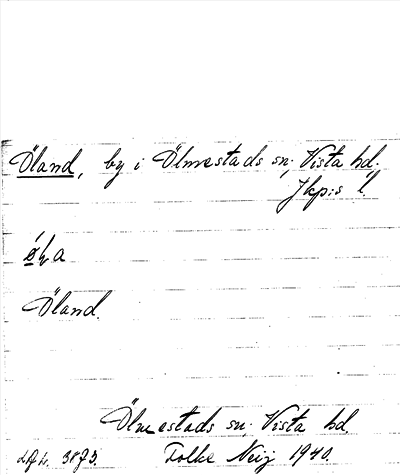 Öland, by i Ölmestads sn. Vista hd.
Jkp:s l
Öland.
Ölmestads sn. Vista hd.
Folke Neij 1940.